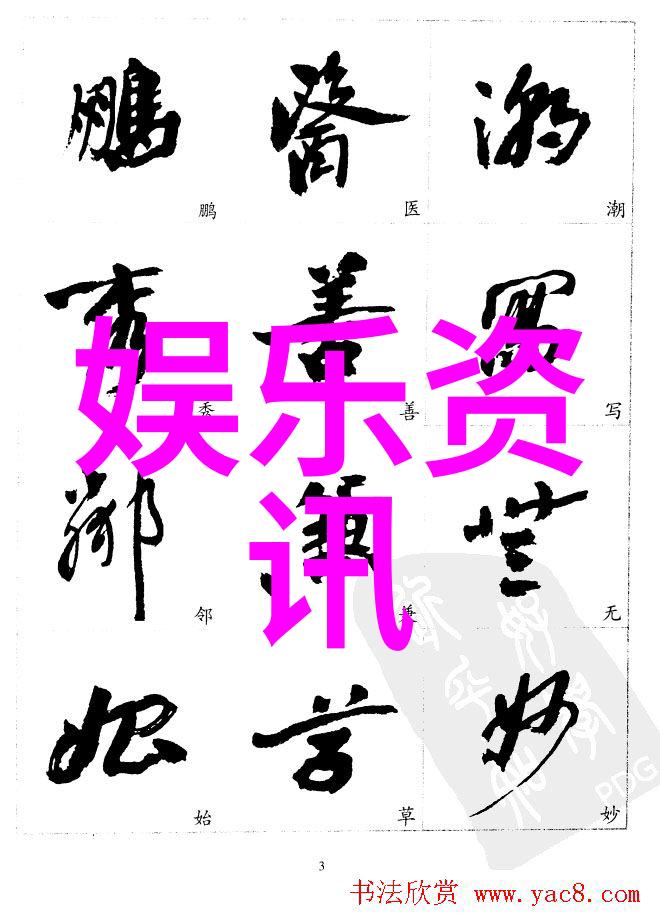 鹏 医 潮
秀 善 写
娱乐资
讯
邻 兼 无
始 草 妙
PDG
3
书法欣赏 www.yac8.com